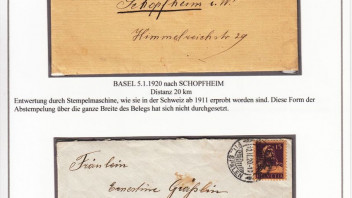 Schopfheim i. W.
Himmelreichstr. 29
BASEL 5.1.1920 nach SCHOPFHEIM
Distanz 20 km
Entwertung durch Stempelmaschine, wie sie in der Schweiz ab 1911 erprobt worden sind. Diese Form der
Abstempelung über die ganze Breite des Belegs hat sich nicht durchgesetzt.
Fräulein
Ernestine Gräßlin